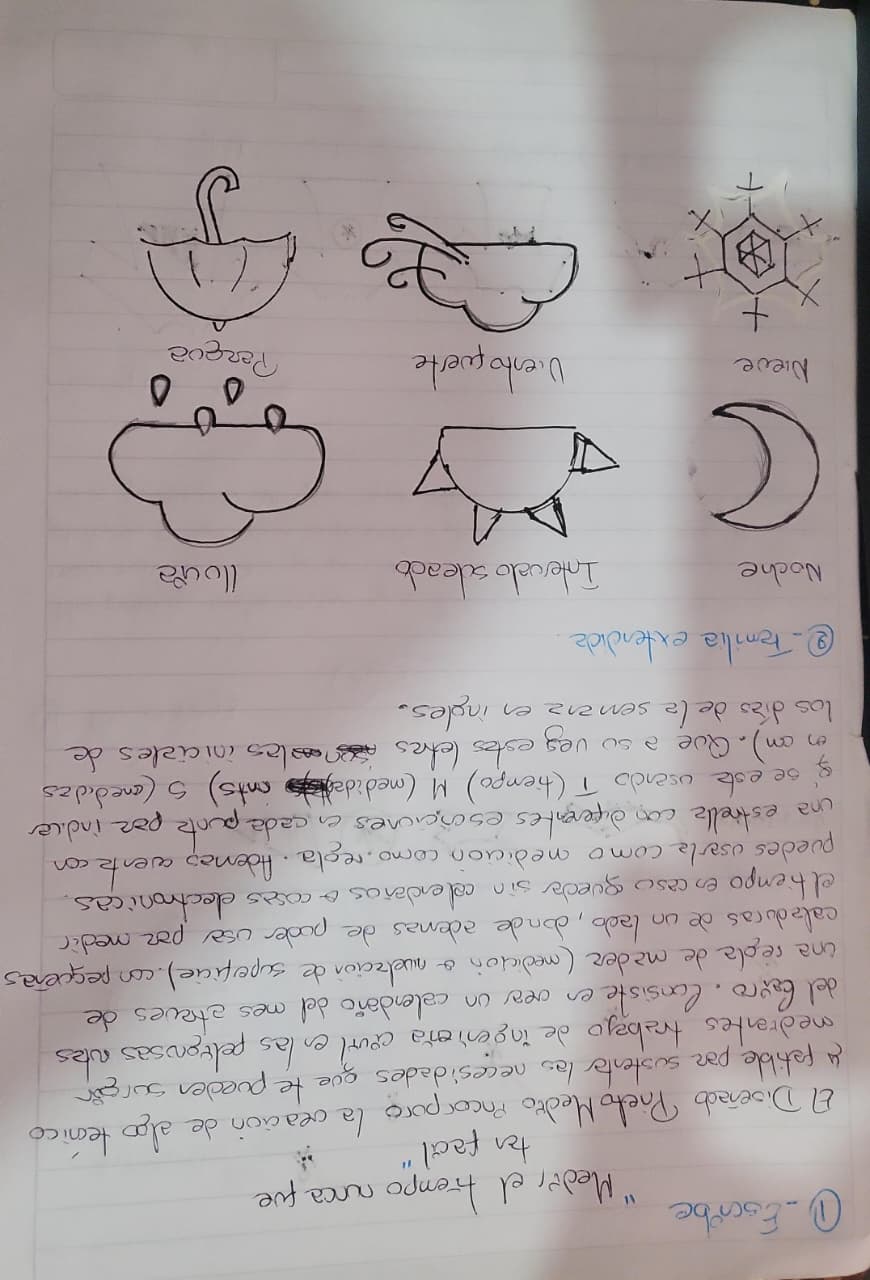 ① - Escribe
"Medir el tiempo nunca fue
tan facil"
El Diseñado Prieto Medio incorporo la creacion de algo tecnico
y fatible par sustentar las necesidades que te pueden surgir
mediantes trabajo de ingenieria civil en las peligrosas rutas
del Cairo. Consiste en crear un calendario del mes atraves de
una regla de madera (medicion o nivelacion de superficie). con pequeñas
caladuras de un lado, donde ademas de poder usar par medir
el tiempo en caso quedar sin calendarios o cosas electronicas.
puedes usarla como medicion como regla. Ademas cuenta con
una estrella con diferentes esciciones en cada punta par inducir
q' se esta usando T (tiempo) M (medidas mts) S (medidas
en cm). Que a su vez estas letras las iniciales de
los días de la semana en ingles.
② - Familia extendida.
Noche Intervalo soleado lluvia
Nieve Viento fuerte Paragua